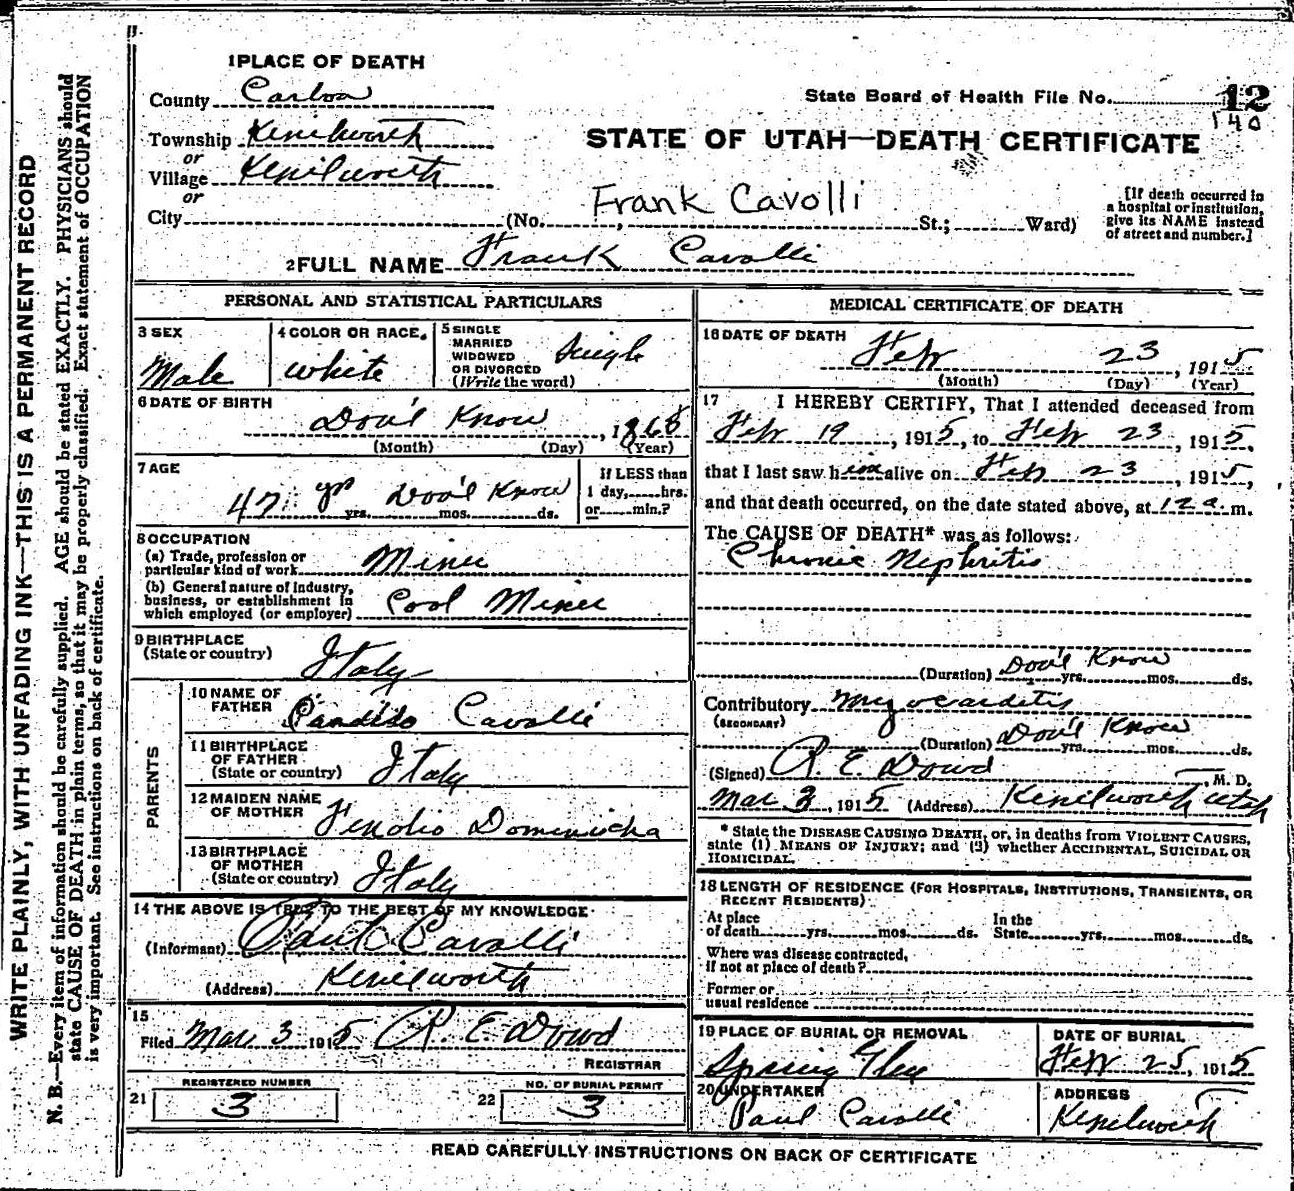 WRITE PLAINLY, WITH UNFADING INK—THIS IS A PERMANENT RECORD
N. B.—Every item of information should be carefully supplied. AGE should be stated EXACTLY. PHYSICIANS should
state CAUSE OF DEATH in plain terms, so that it may be properly classified. Exact statement of OCCUPATION
is very important. See instructions on back of certificate.
1 PLACE OF DEATH
County Carbon
State Board of Health File No. 12
140
Township Kenilworth
or
STATE OF UTAH—DEATH CERTIFICATE
Village Kenilworth
or
Frank Cavolli
[If death occurred in
a hospital or institution,
give its NAME instead
of street and number.]
City (No. , St.; Ward)
2 FULL NAME Frank Cavalli
PERSONAL AND STATISTICAL PARTICULARS
3 SEX
Male
4 COLOR OR RACE.
white
5 SINGLE
MARRIED
WIDOWED
OR DIVORCED
(Write the word)
Single
6 DATE OF BIRTH
Don't Know , 1868
(Month) (Day) (Year)
7 AGE
47 yrs Don't Know
yrs. mos. ds.
If LESS than
1 day, hrs.
or min.?
8 OCCUPATION
(a) Trade, profession or
particular kind of work Miner
(b) General nature of industry,
business, or establishment in
which employed (or employer) Cool Miner
9 BIRTHPLACE
(State or country) Italy
PARENTS
10 NAME OF
FATHER Candido Cavalli
11 BIRTHPLACE
OF FATHER
(State or country) Italy
12 MAIDEN NAME
OF MOTHER Fenolio Dominicha
13 BIRTHPLACE
OF MOTHER
(State or country) Italy
14 THE ABOVE IS TRUE TO THE BEST OF MY KNOWLEDGE
(Informant) Paul Cavalli
(Address) Kenilworth
15
Filed Mar 3 1915 R. E. Dowd
REGISTRAR
REGISTERED NUMBER
21 3
NO. OF BURIAL PERMIT
22 3
MEDICAL CERTIFICATE OF DEATH
16 DATE OF DEATH
Feb 23 , 1915
(Month) (Day) (Year)
17 I HEREBY CERTIFY, That I attended deceased from
Feb 19 , 1915, to Feb 23 , 1915,
that I last saw him alive on Feb 23 , 1915,
and that death occurred, on the date stated above, at 12 a. m.
The CAUSE OF DEATH* was as follows:
Chronic Nephritis
(Duration) Don't Know yrs. mos. ds.
Contributory Myocarditis
(SECONDARY)
(Duration) Don't Know yrs. mos. ds.
(Signed) R. E. Dowd , M. D.
Mar 3 , 1915 (Address) Kenilworth Utah
* State the DISEASE CAUSING DEATH, or, in deaths from VIOLENT CAUSES,
state (1) MEANS OF INJURY; and (2) whether ACCIDENTAL, SUICIDAL OR
HOMICIDAL.
18 LENGTH OF RESIDENCE (FOR HOSPITALS, INSTITUTIONS, TRANSIENTS, OR
RECENT RESIDENTS)
At place
of death yrs. mos. ds.
In the
State yrs. mos. ds.
Where was disease contracted,
if not at place of death?
Former or
usual residence
19 PLACE OF BURIAL OR REMOVAL
Spring Glen
DATE OF BURIAL
Feb 25, 1915
20 UNDERTAKER
Paul Cavalli
ADDRESS
Kenilworth
READ CAREFULLY INSTRUCTIONS ON BACK OF CERTIFICATE